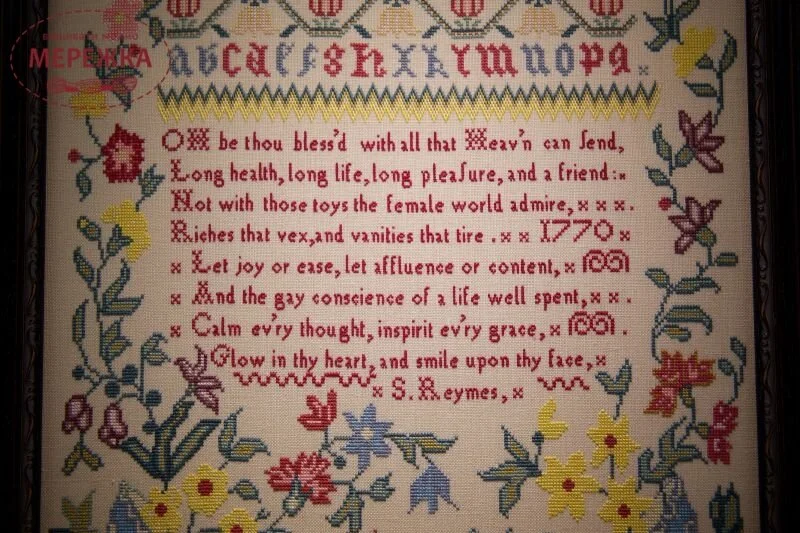 МЕРЕЖКА
abcdefghIklmnopq
OH be thou bless'd with all that Heav'n can ſend,
Long health, long life, long pleaſure, and a friend:
Not with those toys the female world admire,
Riches that vex, and vanities that tire. 1770
Let joy or ease, let affluence or content,
And the gay conscience of a life well spent,
Calm ev'ry thought, inspirit ev'ry grace,
Glow in thy heart, and smile upon thy face,
S. Reymes,